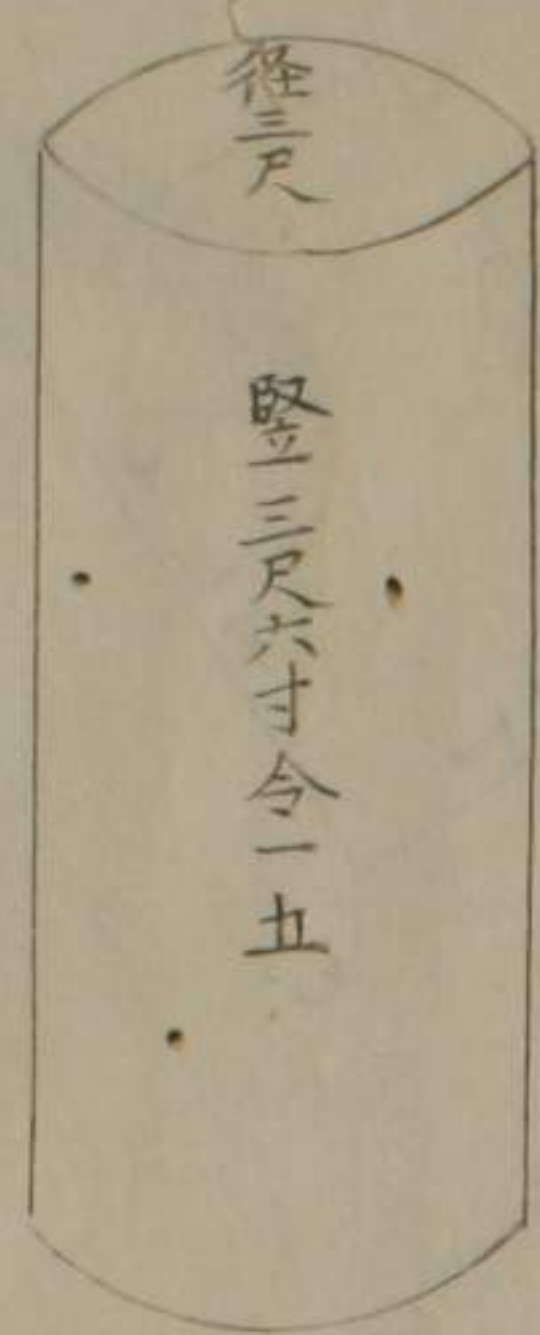 径三尺
竪三尺六寸令一五